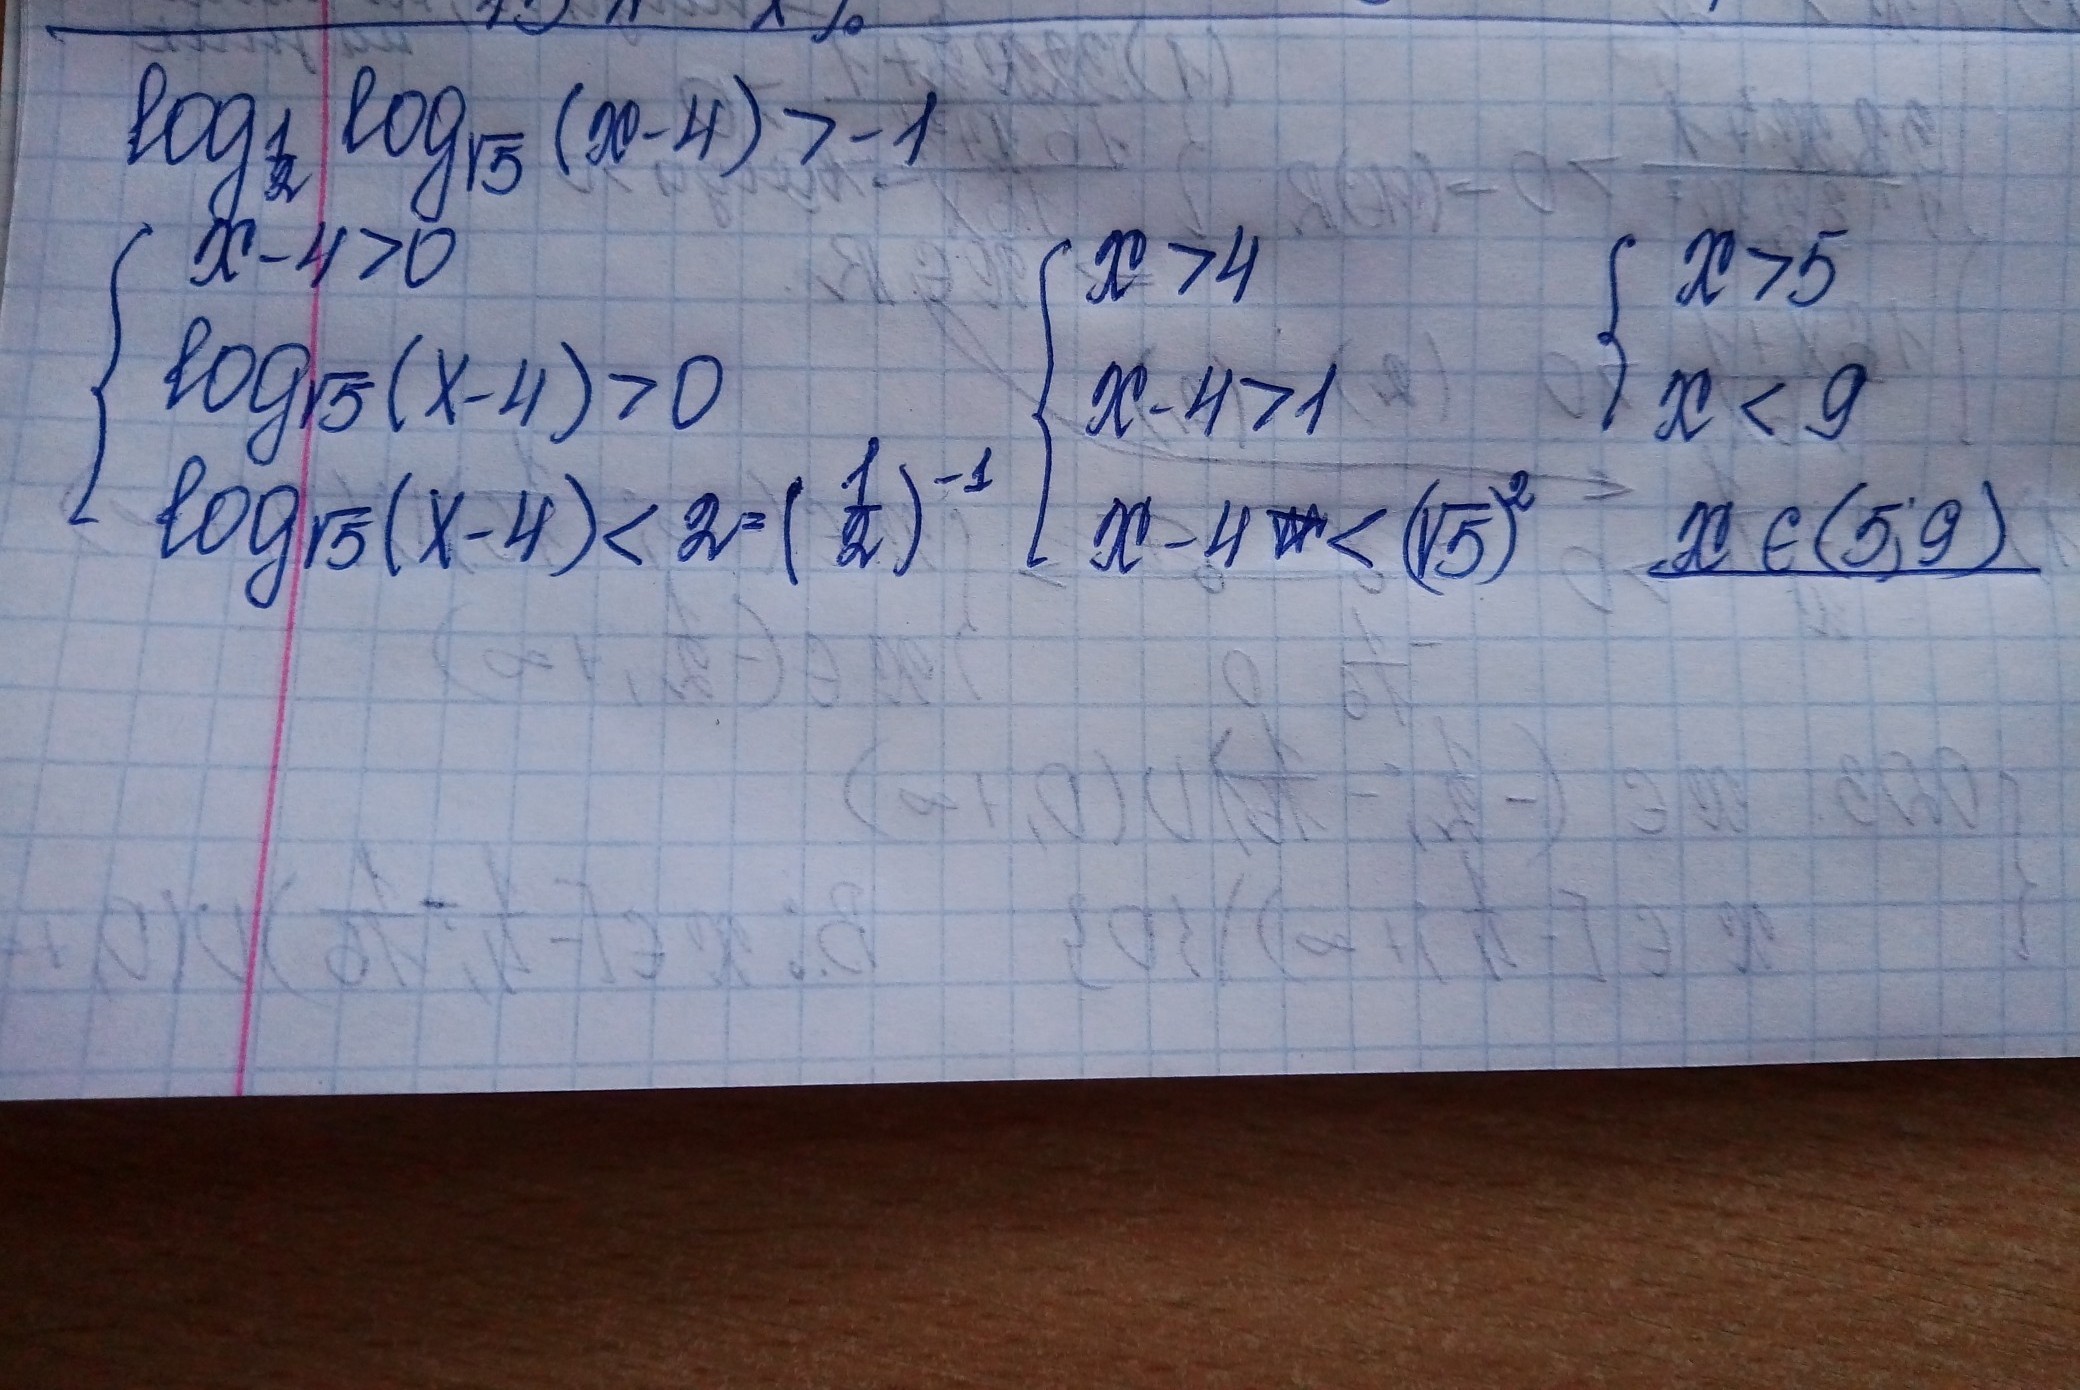 log_{1/2} log_{√5} (x-4) > -1
{ x-4>0
log_{√5} (x-4) > 0
log_{√5} (x-4) < 2 = (1/2)^{-1}
{ x > 4
x-4>1
x-4 < (√5)^2
{ x > 5
x < 9
x ∈ (5; 9)